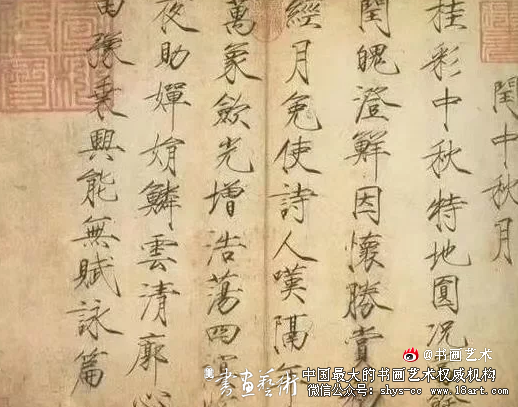 閏中秋月
桂彩中秋特地圓況
閏魄澄鮮因懷勝賞
經月免使詩人嘆隔
萬象斂光增浩蕩四
夜助嬋娟鱗雲清廓心
張乘興能無賦詠篇
@书画艺术
書畫藝術
中国最大的书画艺术权威机构
微信公众号:shys-cc www.18art.com